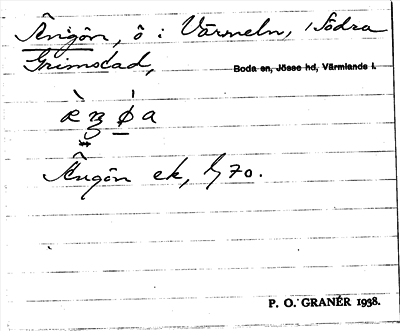 Ängön, ö i Värmeln, i Södra
Grimstad,
Boda sn, Jösse hd, Värmlands l.
Ängön ek, G 70.
P. O. GRANÉR 1938.